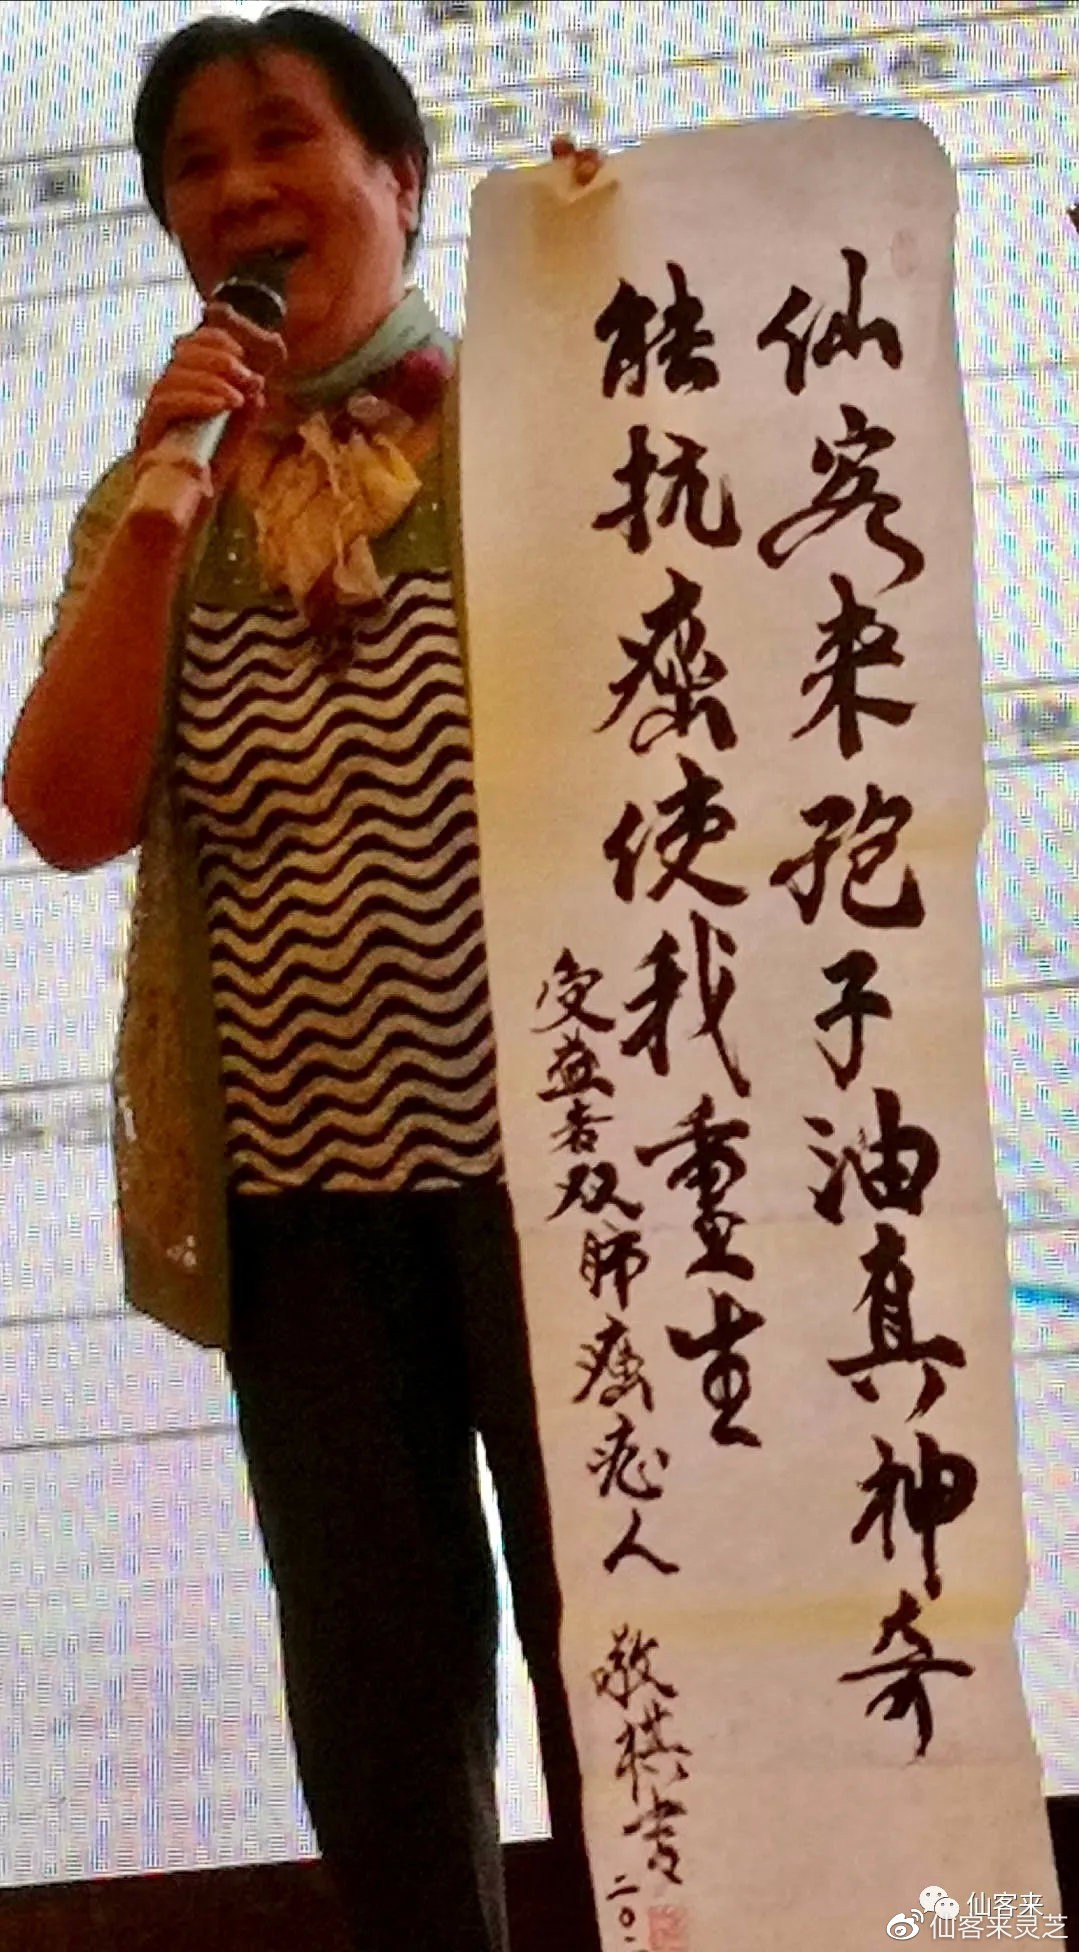 仙客来孢子油真神奇
能抗癌使我重生
受益者双肺癌患人
敬棋书
二〇二
仙客来
仙客来灵芝